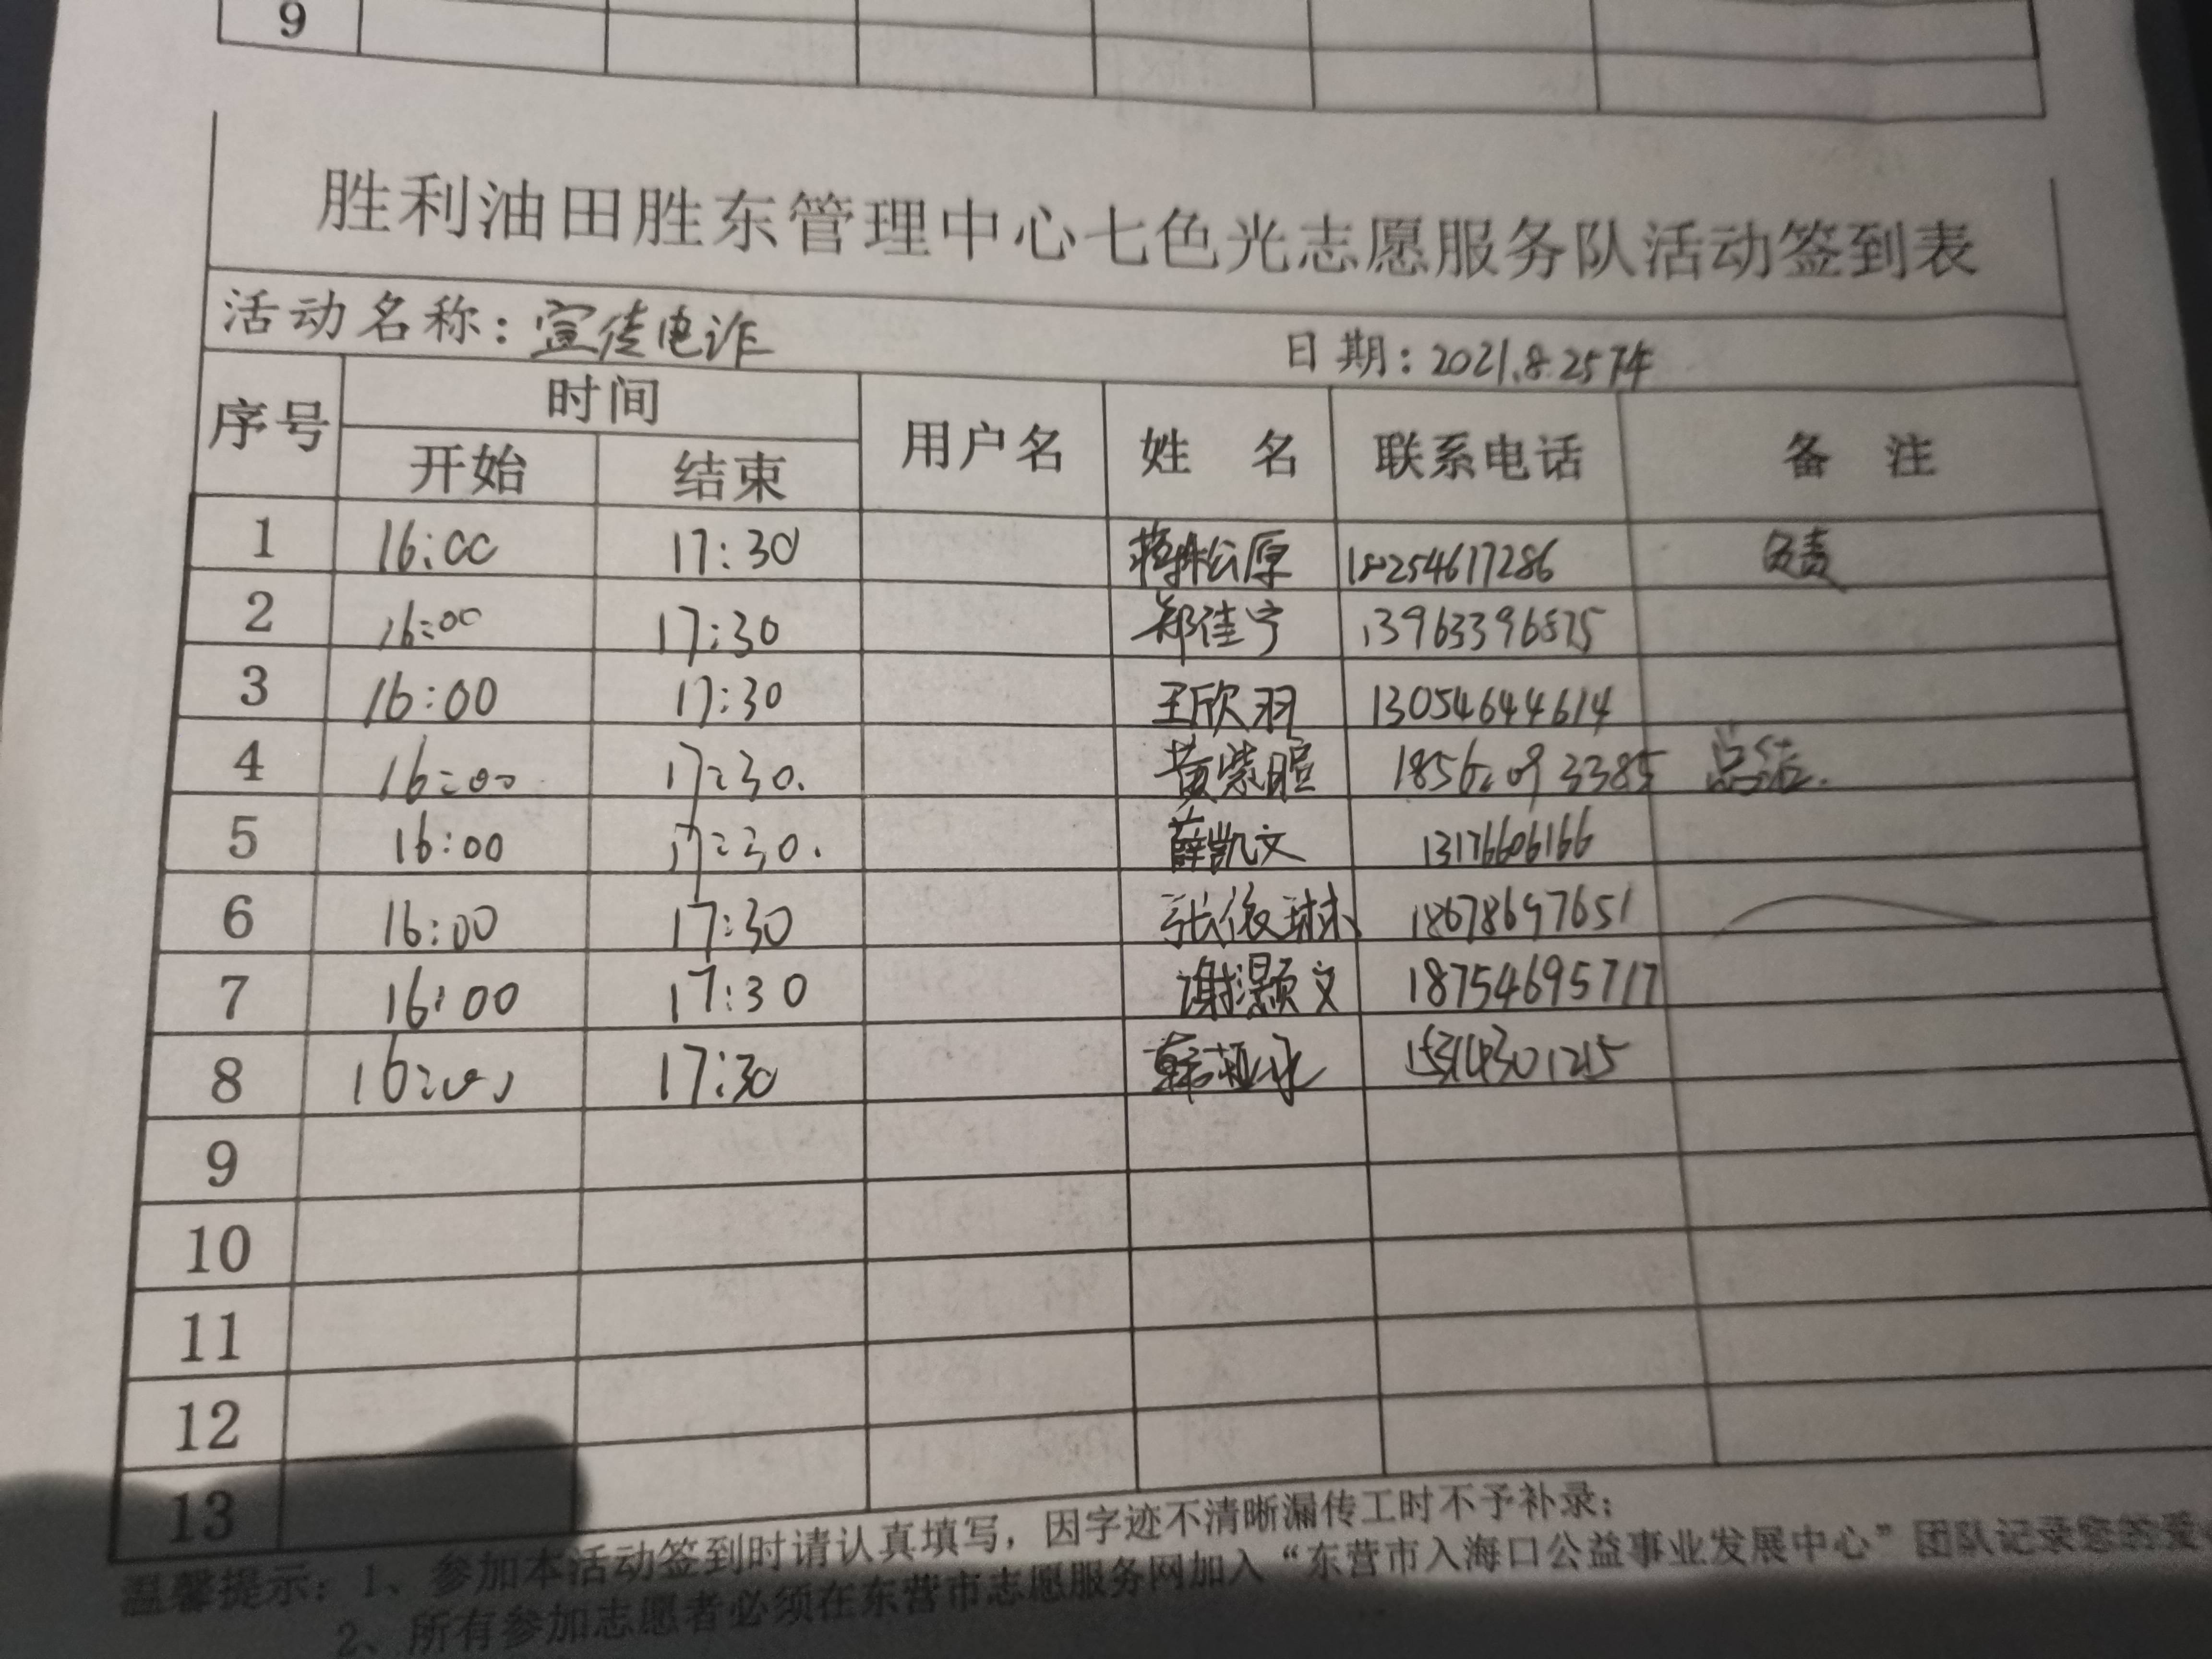 9
胜利油田胜东管理中心七色光志愿服务队活动签到表
活动名称：宣传电诈 日期：2021.8.25下午
序号 时间 用户名 姓 名 联系电话 备 注
开始 结束
1 16:00 17:30 蒋松原 18254617286 负责
2 16:00 17:30 郑佳宁 13963396875
3 16:00 17:30 王欣羽 13054644614
4 16:00 17:30. 黄紫暄 18562093385 总结.
5 16:00 17:30. 薛凯文 13176606166
6 16:00 17:30 张依琳 18678697651
7 16:00 17:30 谢灏文 18754695717
8 16:00 17:30 韩 15314301215
9
10
11
12
13
温馨提示：1、参加本活动签到时请认真填写，因字迹不清晰漏传工时不予补录；
2、所有参加志愿者必须在东营市志愿服务网加入“东营市入海口公益事业发展中心”团队记录您的爱